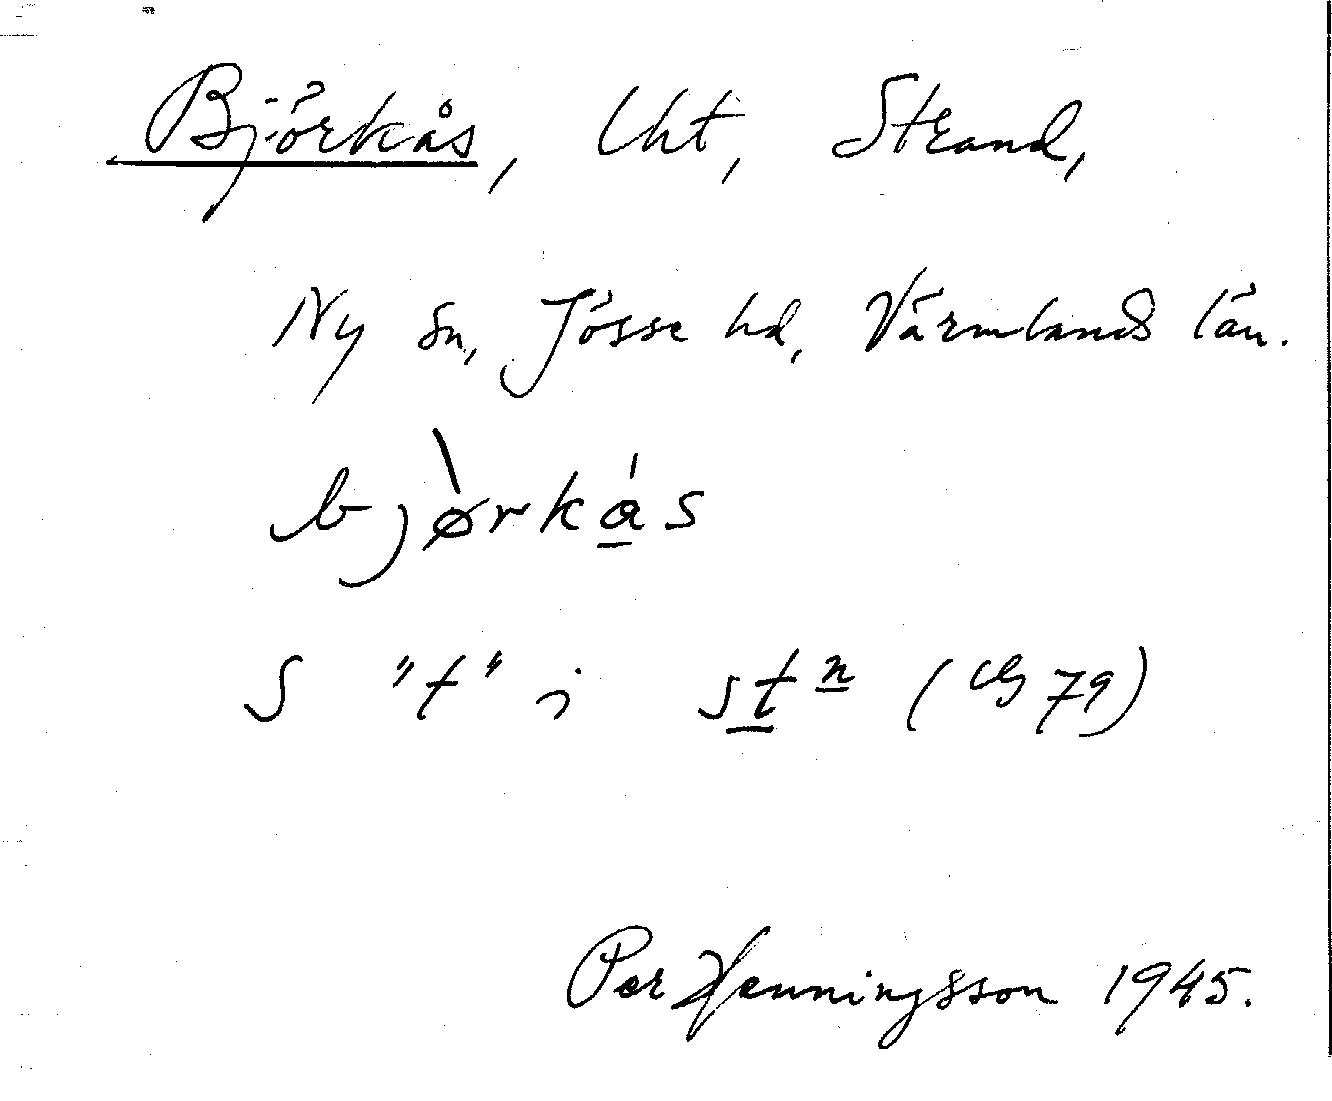 Björkås, lht, Strand,
Ny sn, Jösse hd, Värmlands län.
bjø̀rkás
S "t" i st n (79)
Per Henningsson 1945.